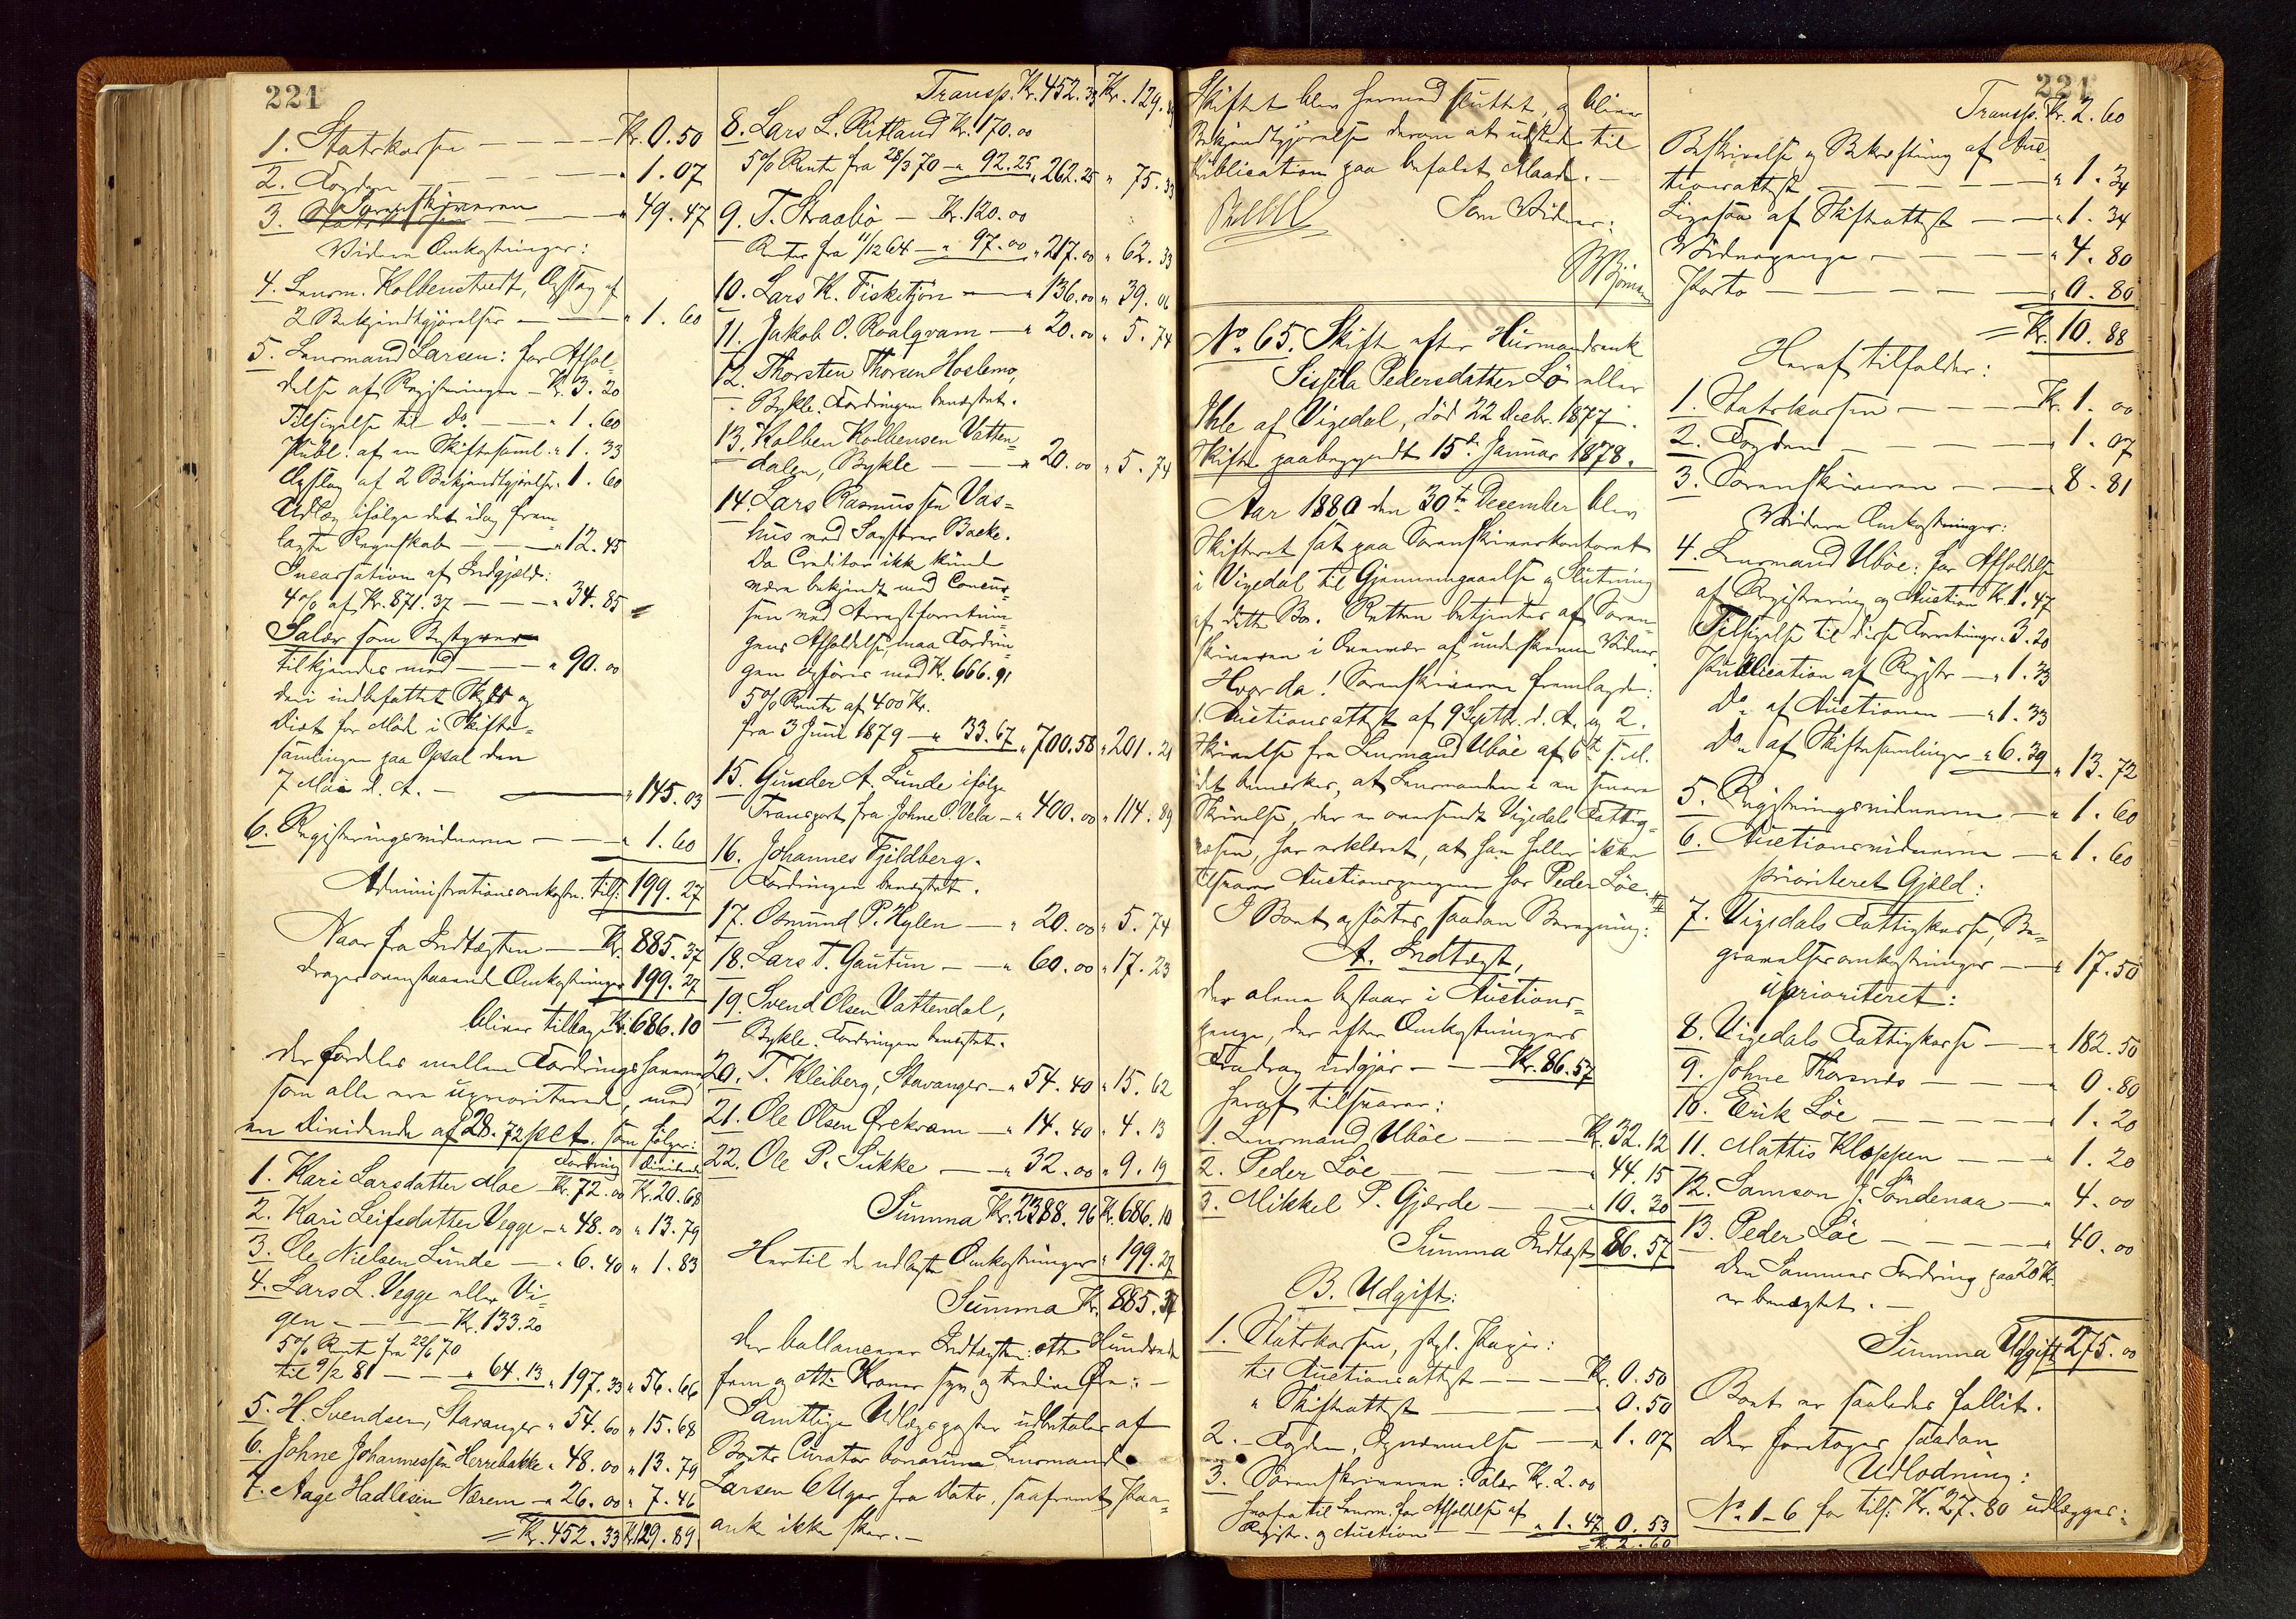 221
1. Statskassen — Kr. 0.50
2. Fogden — " 1.07
3. Sorenskriveren — " 49.47
Videre Omkostninger:
4. Lensm. Kolbenstvedt, Opslag af
2 Bekjendtgjørelser — " 1.60
5. Lensmand Larsen: for Afhol-
delse af Registreringen — Kr. 3.20
Tilsigelse til Do — " 1.60
Publ. af en Skiftesaml. " 1.33
Opslag af 2 Bekjendtgjørelser " 1.60
Udlæg ifølge det idag frem-
lagte Regnskab — " 12.45
Incassation af Indgjæld:
4 % af Kr. 871.37 — " 34.85
Salær som Bestyrer
tilkjendes med — " 90.00
deri indbefattet Skyds og
Diæt for Møde i Skifte-
samlingen paa Opsal den
7 Mai d. A. — " 145.03
6. Registreringsvidnerne — " 1.60
Administrationsomkostn. tils: 199.27
Naar fra Indtægten — Kr. 885.37
drages ovenstaaende Omkostninger 199.27
bliver tilbage Kr. 686.10
der fordeles mellem Fordringshaverne,
som alle ere uprioriterede, med
en Dividende af 28.72 pCt. som følger:
Fordring Dividende
1. Kari Larsdatter Moe — Kr. 72.00 Kr. 20.68
2. Kari Leifsdatter Vegge — " 48.00 " 13.79
3. Ole Nielsen Lunde — " 6.40 " 1.83
4. Lars L. Vegge eller Vi-
gen — Kr. 133.20
5 % Rente fra 22/6 70
til 9/2 81 — " 64.13 " 197.33 " 56.66
5. H. Svendsen, Stavanger " 54.60 " 15.68
6. Johne Johannessen Herrebakke " 48.00 " 13.79
7. Aage Hadlesen Nærem — " 26.00 " 7.46
= Kr. 452.33 Kr. 129.89
Transp. Kr. 452.33 Kr. 129.89
8. Lars L. Ritland Kr. 170.00
5 % Rente fra 28/3 70 — " 92.25 " 262.25 " 75.33
9. T. Straabø — Kr. 120.00
Renter fra 11/12 64 — " 97.00 " 217.00 " 62.33
10. Lars K. Fisketjøn — " 136.00 " 39.06
11. Jakob O. Roalqvam — " 20.00 " 5.74
12. Thorsten Thorsen Hoslemo,
Bykle. Fordringen benægtet.
13. Kolben Kolbensen Vatten-
dalen, Bykle — " 20.00 " 5.74
14. Lars Rasmussen Vas-
hus med Sagfører Backe.
Da Creditor ikke kunde
være bekjendt med Concur-
sen ved Arrestforretnin-
gens Afholdelse, maa Fordrin-
gen opføres med Kr. 666.91
5 % Rente af 400 Kr.
fra 3 Juni 1879 — " 33.67 " 700.58 " 201.21
15. Gunder A. Lunde ifølge
Transport fra Johne O. Vela — " 400.00 " 114.89
16. Johannes Fjeldberg.
Fordringen benægtet.
17. Osmund P. Hylen — " 20.00 " 5.74
18. Lars T. Gautun — " 60.00 " 17.23
19. Svend Olsen Vattendal,
Bykle. Fordringen benægtet.
20. T. Kleiberg, Stavanger — " 54.40 " 15.62
21. Ole Olsen Ørekvam — " 14.40 " 4.13
22. Ole P. Sukke — " 32.00 " 9.19
Summa Kr. 2388.96 Kr. 686.10
Hertil de udlagte Omkostninger " 199.27
Summa Kr. 885.37
der ballancerer Indtægten: otte Hundrede
fem og otti Kroner syv og tredive Øre. —
Samtlige Udlægsposter udbetales af
Boets Curator bonorum Lensmand
Larsen 6 Uger fra Dato, saafremt Paa-
anke ikke sker. —
Skiftet blev hermed sluttet, og bliver
Bekjendtgjørelse derom at udstede til
Publication paa befalet Maade. —
Som Vidner:
No. 65. Skifte efter Husmandsenke
Sissela Pedersdatter Lø eller
Ihle af Vigedal, død 22 Decbr. 1877.
Skifte paabegyndt 15de Januar 1878.
Aar 1880 den 30te December blev
Skifteret sat paa Sorenskriverkontoret
i Vigedal til Gjennemgaaelse og Slutning
af dette Bo. Retten betjentes af Soren-
skriveren i Overvær af underskrevne Vidner.
Hvor da! Sorenskriveren fremlagde:
1. Auctionsattest af 9 Septbr. d. A. og 2.
Skrivelse fra Lensmand Ubøe af 6te f. M.
idet bemærkes, at Lensmanden i en senere
Skrivelse, der er oversendt Vigedals Fattig-
væsen, har erklæret, at han heller ikke
tilsvarer Auctionspengene for Peder Løe.
I Boet opførtes saadan Beregning:
A. Indtægt,
der alene bestaar i Auctions-
penge, der efter Omkostningers
Fradrag udgjør — Kr. 86.57
heraf tilsvarer:
1. Lensmand Ubøe — Kr. 32.12
2. Peder Løe — " 44.15
3. Mikkel P. Gjerde — " 10.30
Summa Indtægt 86.57
B. Udgift:
1. Statskassen, stpl. Papir:
til Auctionsattest — Kr. 0.50
" Skifteattest — " 0.50
2. Fogden, Opnævnelse — " 1.07
3. Sorenskriveren: Salær Kr. 2.00
herfra til Lensm. for Afholdelse af
Registr. og Auction — " 1.47 0.53
= Kr. 2.60
221
Transp. Kr. 2.60
Beskrivelse og Bekræftning af Auc-
tionsattest — " 1.34
Ligesaa af Skifteattest — " 1.34
Vidnepenge — " 4.80
Porto — " 0.80
= Kr. 10.88
Heraf tilfalder:
1. Statskassen — Kr. 1.00
2. Fogden — " 1.07
3. Sorenskriveren — " 8.81
Videre Omkostninger:
4. Lensmand Ubøe: for Afholdelse
af Registrering og Auction Kr. 1.47
Tilsigelse til disse Forretninger " 3.20
Publication af Registr — " 1.33
Do af Auctionen — " 1.33
Do af Skiftesamlinger " 6.39 " 13.72
5. Registreringsvidnerne — " 1.60
6. Auctionsvidnerne — " 1.60
prioriteret Gjæld:
7. Vigedals Fattigkasse, Be-
gravelsesomkostninger — " 17.50
uprioriteret:
8. Vigedals Fattigkasse — " 182.50
9. Johne Thorsnes — " 0.80
10. Erik Løe — " 1.20
11. Mattis Kloppen — " 1.20
12. Samson J. Søndenaa — " 4.00
13. Peder Løe — " 40.00
Den Sammes Fordring paa 20 Kr.
er benægtet. —
Summa Udgift 275.00
Boet er saaledes fallit.
Der foretoges saadan
Udlodning:
No 1-6 for tils: Kr. 27.80 udlægges: